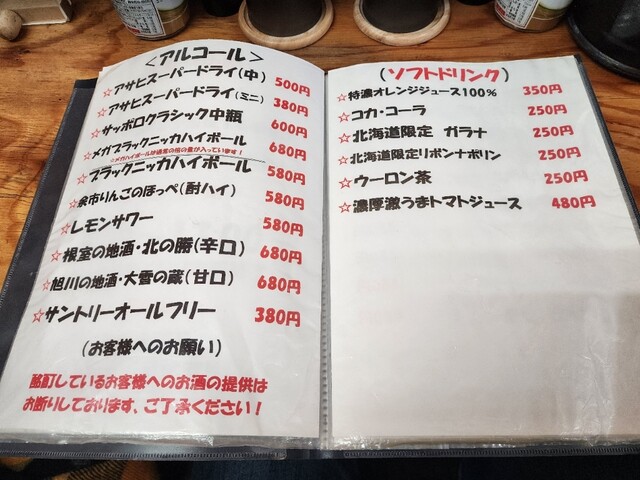 ＜アルコール＞
☆アサヒスーパードライ(中) 500円
☆アサヒスーパードライ(ミニ) 380円
☆サッポロクラシック中瓶 600円
☆メガブラックニッカハイボール 680円
☆メガハイボールが通常の倍の量が入っています！
☆ブラックニッカハイボール 580円
☆余市りんごのほっぺ(酎ハイ) 580円
☆レモンサワー 580円
☆根室の地酒・北の勝(辛口) 680円
☆旭川の地酒・大雪の蔵(甘口) 680円
☆サントリーオールフリー 380円
(お客様へのお願い)
酩酊しているお客様へのお酒の提供は
お断りしております、ご了承ください！
(ソフトドリンク)
☆特濃オレンジジュース100% 350円
☆コカ・コーラ 250円
☆北海道限定 ガラナ 250円
☆北海道限定リボンナポリン 250円
☆ウーロン茶 250円
☆濃厚激うまトマトジュース 480円